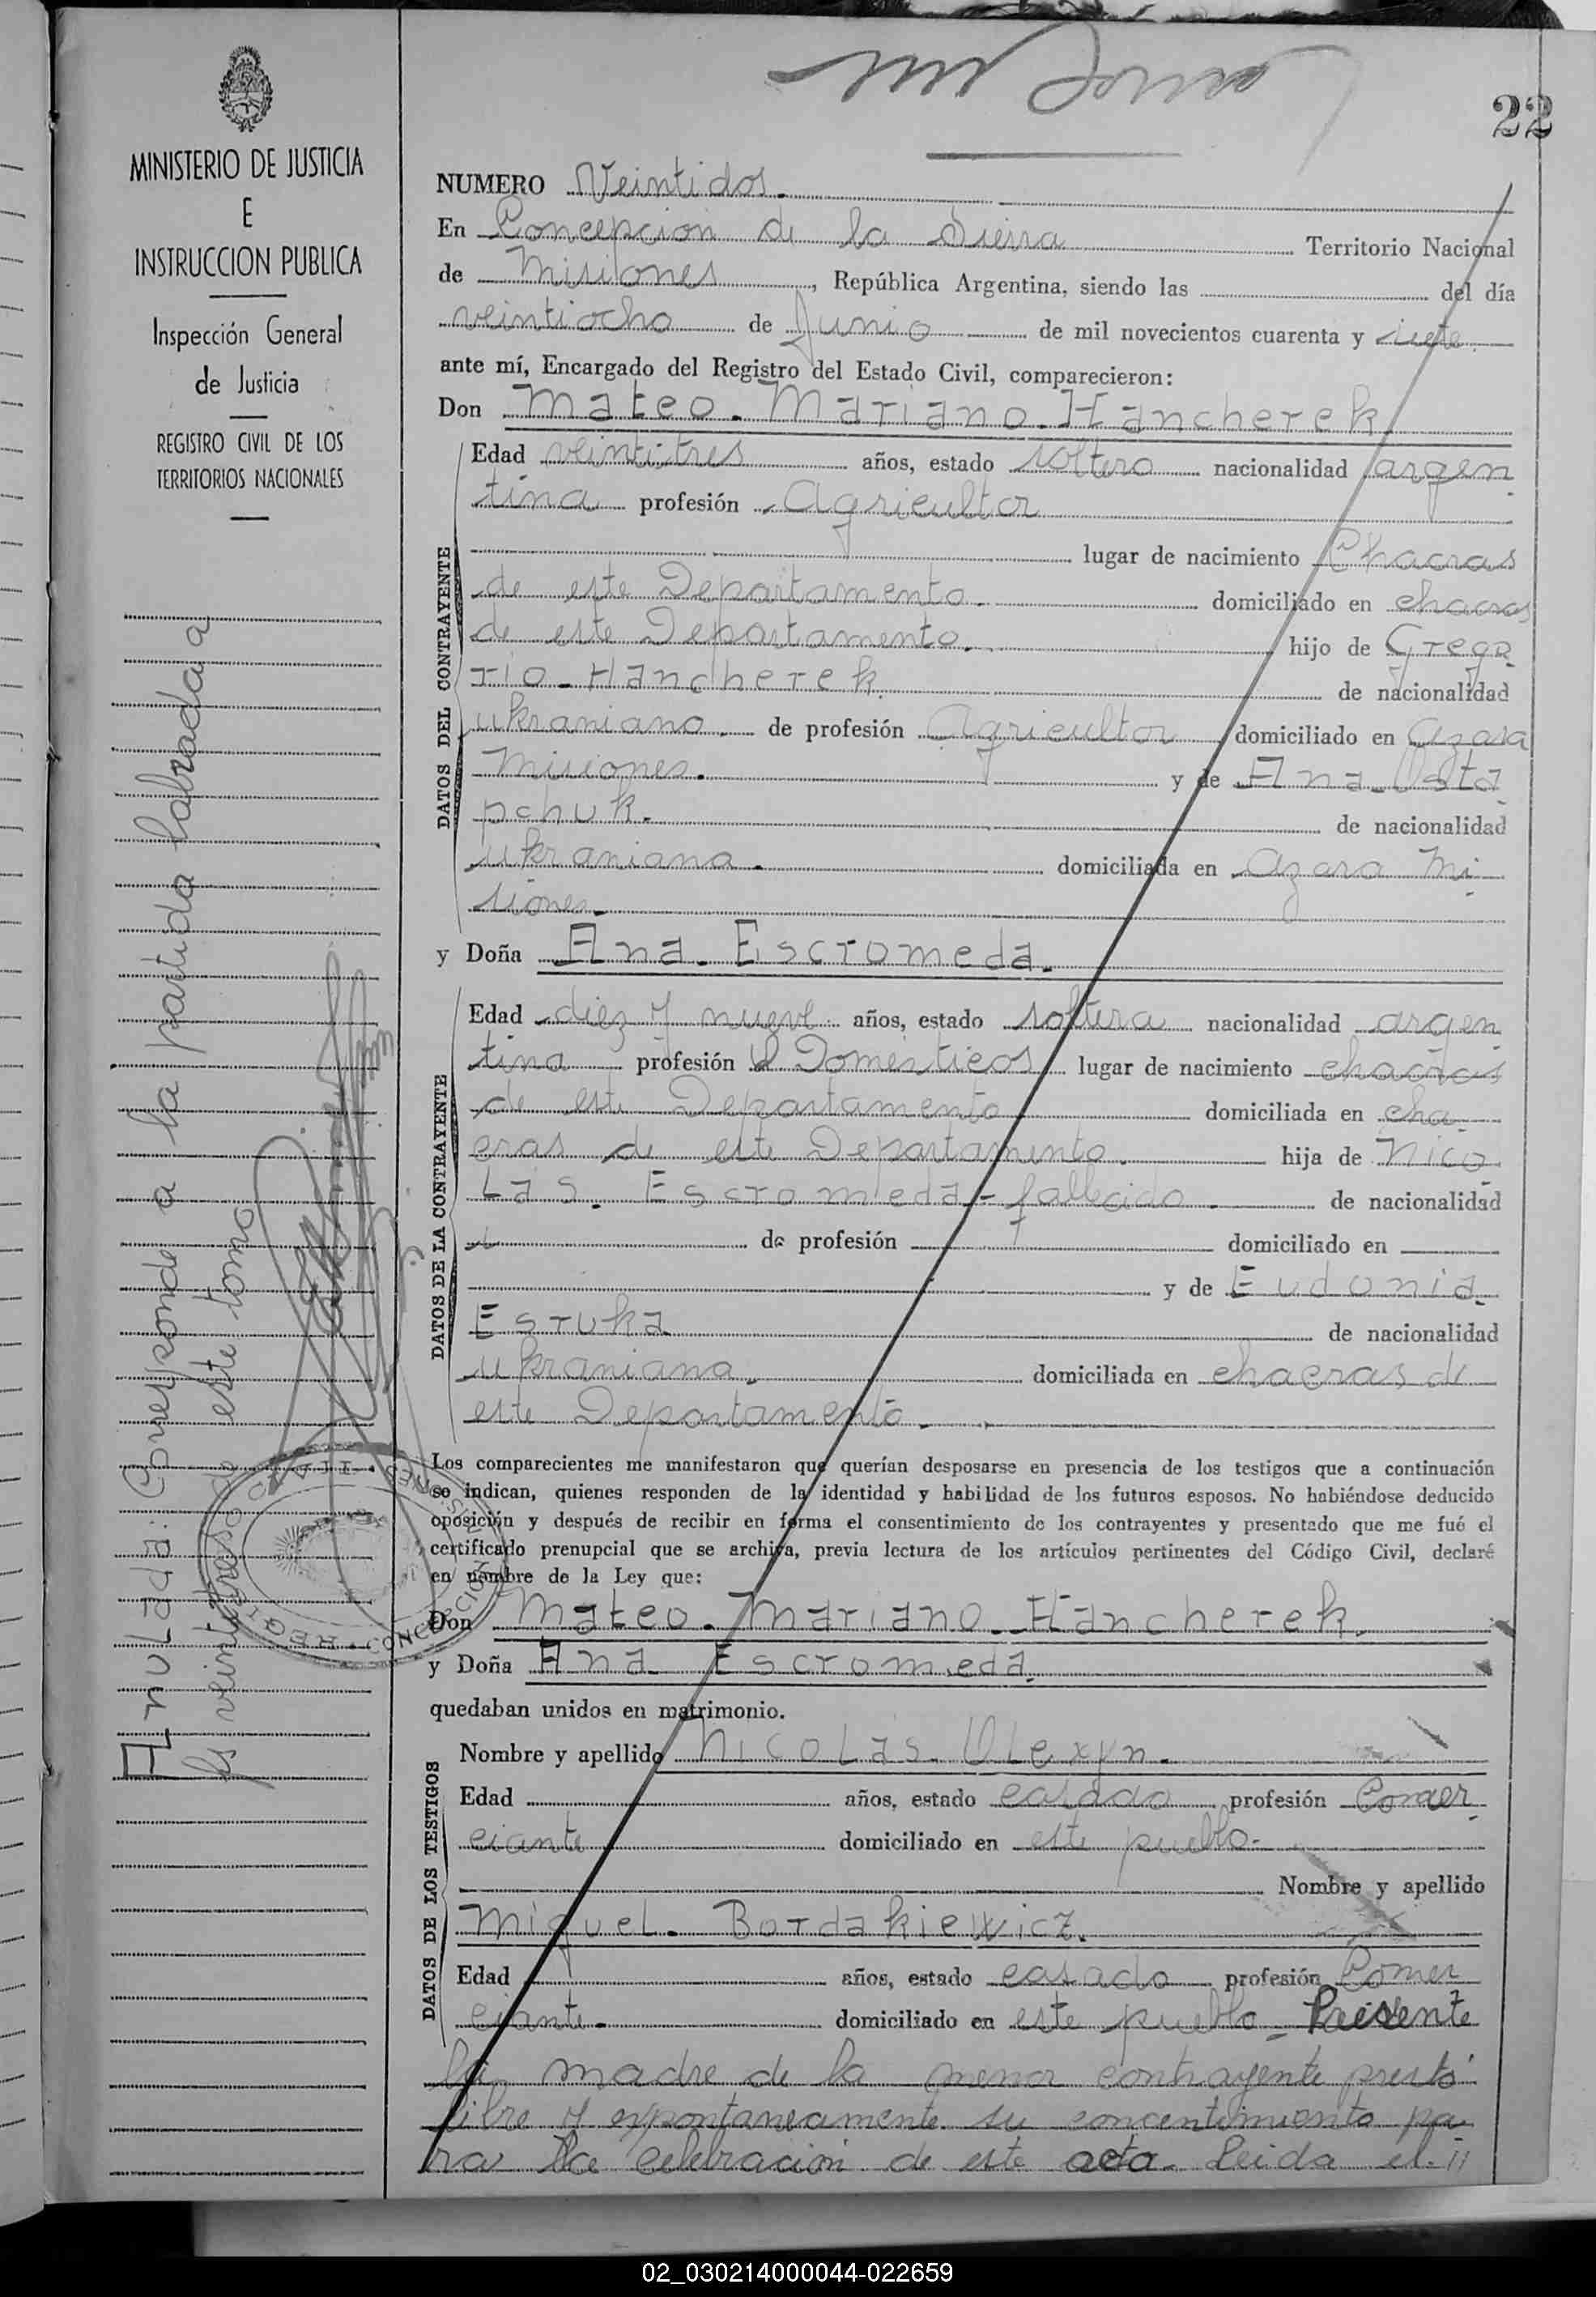 22
MINISTERIO DE JUSTICIA
E
INSTRUCCION PUBLICA
Inspección General
de Justicia
REGISTRO CIVIL DE LOS
TERRITORIOS NACIONALES
Anulada: Corresponde a la partida labrada a
fs veintitres de este tomo
NUMERO Veintidos.
En Concepcion de la Sierra Territorio Nacional
de Misiones, República Argentina, siendo las del día
veintiocho de Junio de mil novecientos cuarenta y siete
ante mí, Encargado del Registro del Estado Civil, comparecieron:
Don Mateo. Mariano. Hancherek.
DATOS DEL CONTRAYENTE
Edad veintitres años, estado soltero nacionalidad argen
tina profesión Agricultor
lugar de nacimiento Chacras
de este Departamento. domiciliado en chacras
de este Departamento. hijo de Grego
rio. Hancherek. de nacionalidad
ukraniano. de profesión Agricultor domiciliado en Azara
Misiones. y de Ana. Osta
pchuk. de nacionalidad
ukraniana. domiciliada en Azara Mi
siones.
y Doña Ana. Escromeda.
DATOS DE LA CONTRAYENTE
Edad diez y nueve años, estado soltera nacionalidad argen
tina profesión Q Domésticos lugar de nacimiento chacras
de este Departamento domiciliada en cha
cras de este Departamento. hija de Nico
Las. Escromeda - fallecido. de nacionalidad
de profesión domiciliado en
y de Eudonia.
Esruka de nacionalidad
ukraniana. domiciliada en chacras de
este Departamento.
Los comparecientes me manifestaron que querían desposarse en presencia de los testigos que a continuación
se indican, quienes responden de la identidad y habilidad de los futuros esposos. No habiéndose deducido
oposición y después de recibir en forma el consentimiento de los contrayentes y presentado que me fué el
certificado prenupcial que se archiva, previa lectura de los artículos pertinentes del Código Civil, declaré
en nombre de la Ley que:
Don Mateo. Mariano. Hancherek.
y Doña Ana. Escromeda.
quedaban unidos en matrimonio.
DATOS DE LOS TESTIGOS
Nombre y apellido Nicolas. Olexyn.
Edad años, estado casado profesión Comer
ciante domiciliado en este pueblo.
Nombre y apellido
Miguel. Bordakiewicz.
Edad años, estado casado profesión Comer
ciante. domiciliado en este pueblo. Presente
la madre de la menor contrayente prestó
libre y expontaneamente su concentimiento pa
ra la celebración de este acto. Leida el
02_030214000044-022659